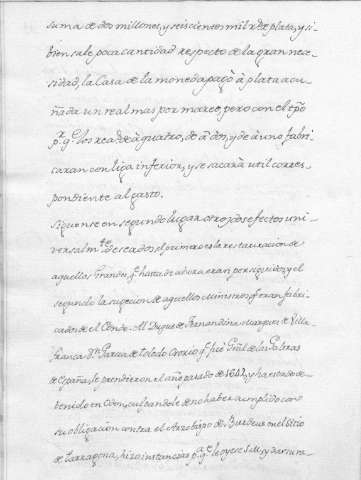 suma de dos millones, y seiscientos mil rs. de plata, y si
bien sale poca cantidad respecto de la gran nece-
sidad, la Casa de la moneda pagó à plata acu-
ñada un real mas por marco, pero con el tpo
pr. qe los rea. de à quatro, de à dos, y de à uno fabri
caran con liga inferior, y se sacarà util corres
pondiente al gasto.
Siguense en segundo lugar otros dos efectos uni-
versalmte. deseados, el primero es la restauracion de
aquellos Grandes, q. hasta de ahora eran perseguidos, y el
segundo la sugecion de aquellos Ministros q. eran fabri-
cados de el Conde. Al Duque de Fernandina Marques de Villa
franca Dn. Garcia de Toledo Ossorio q. fuè Gral de las Galeras
de España, le prendieron el año pasado de 1642, y ha estado de
tenido en Odon, culpandole de no haber cumplido con
su obligacion contra el Arzobispo de Burdeus en el sitio
de Tarragona, hizo instancias pa. qe. le oyese S. M. y dar cuen-